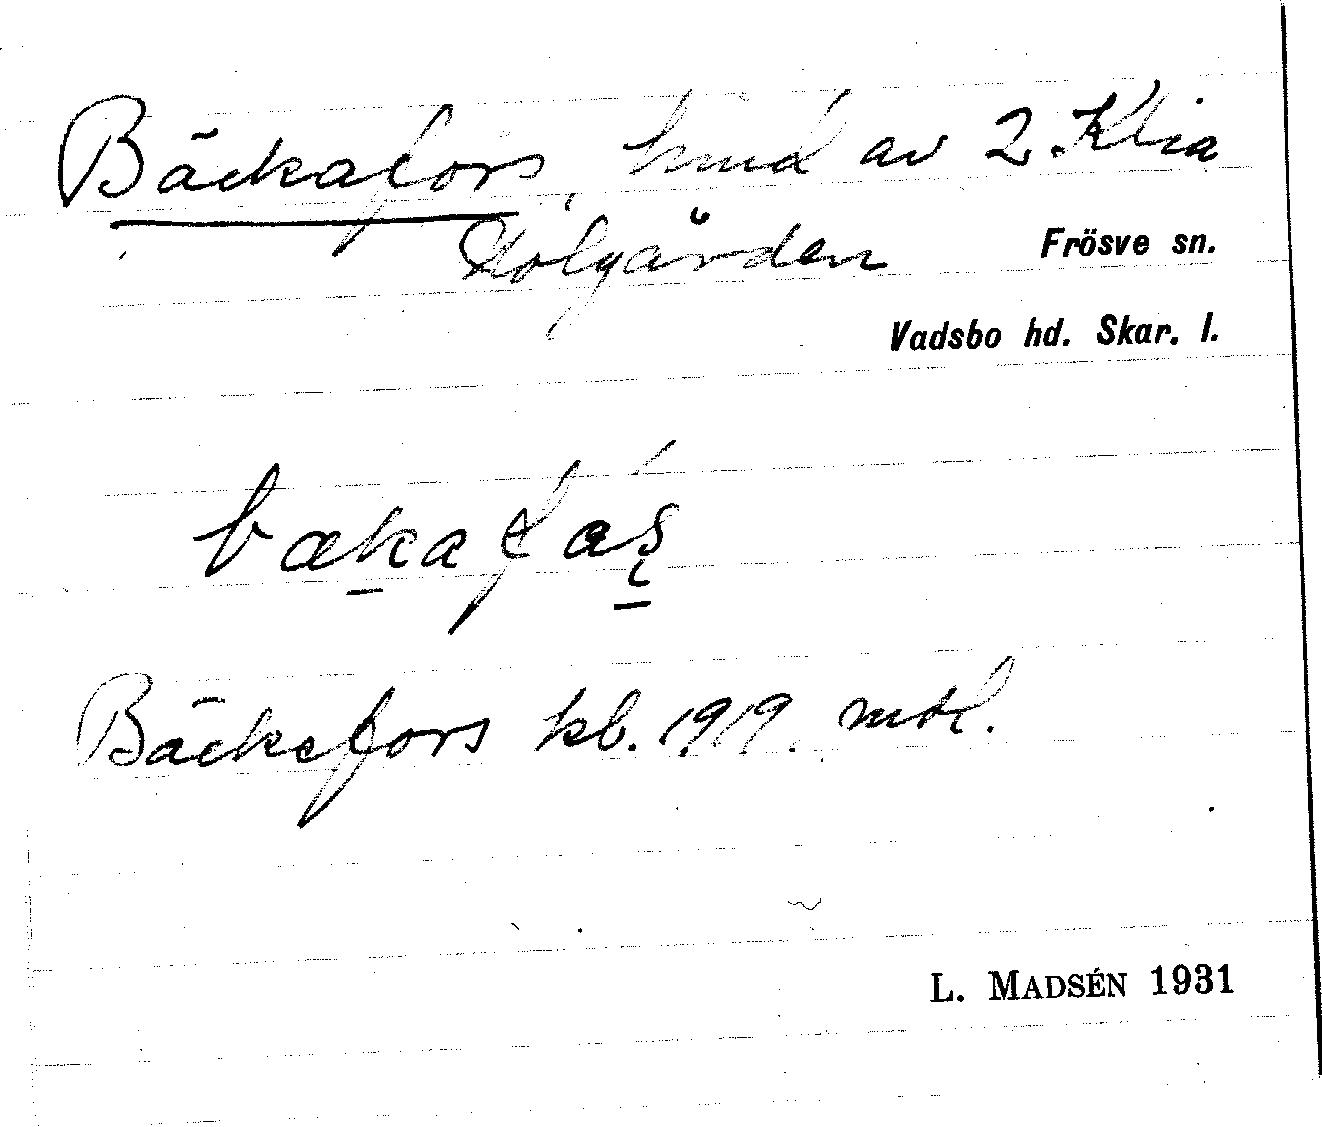 Bäckafors, hmd av 2 Klia
Holgården Frösve sn.
Vadsbo hd. Skar. l.
Bäckafors kb. 1919. mtl.
L. MADSÉN 1931